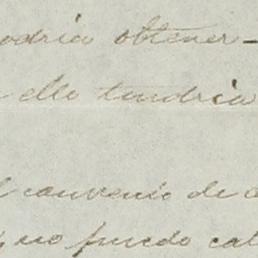 odria obtener-
ello tendria
convenio de
no puedo cal